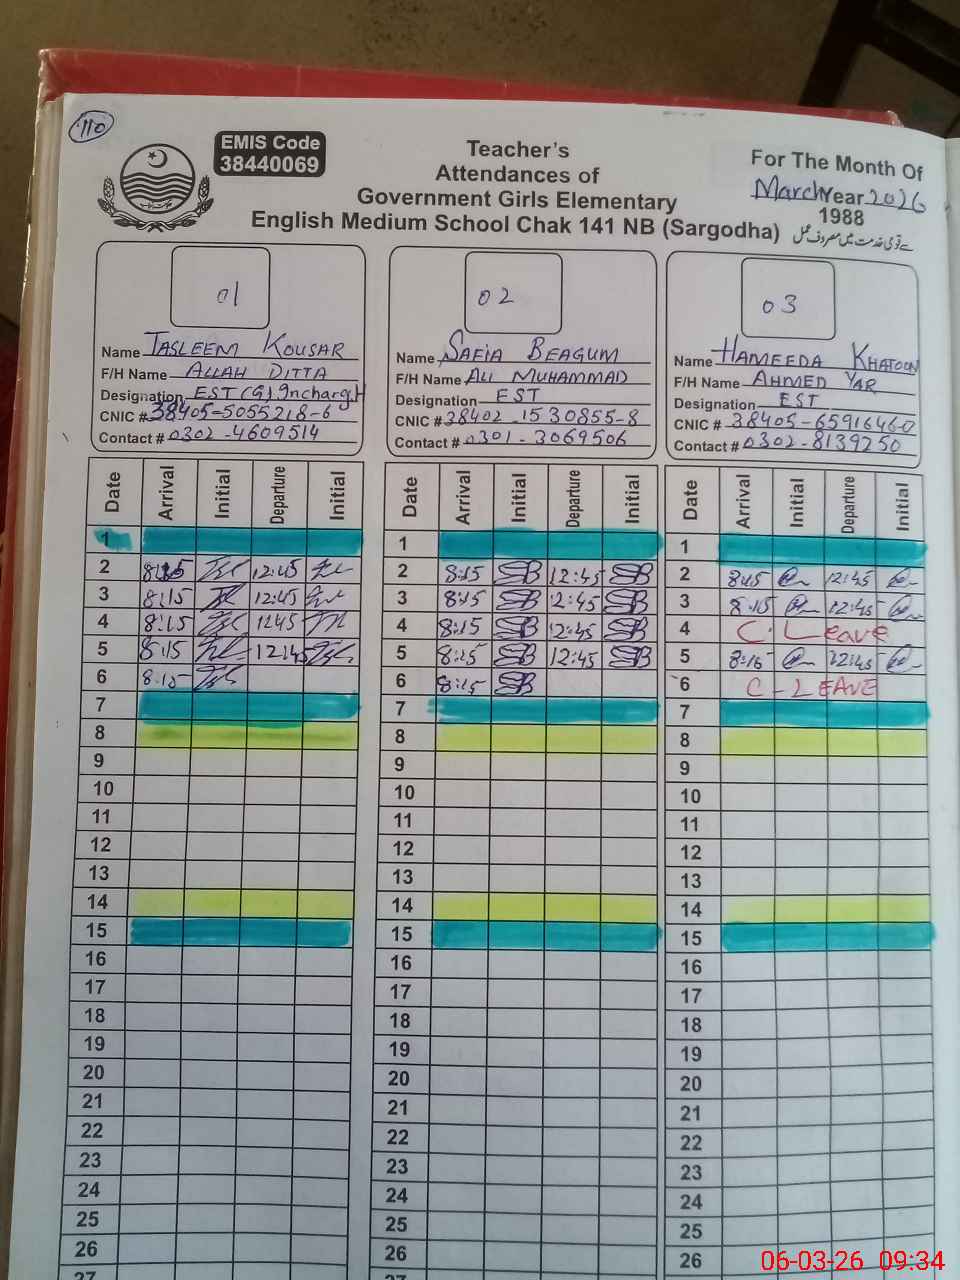 110
EMIS Code
38440069
Teacher's
Attendances of
Government Girls Elementary
English Medium School Chak 141 NB (Sargodha)
For The Month Of
March Year 2026
1988
01
Name TASLEEM KOUSAR
F/H Name ALLAH DITTA
Designation EST (G) Incharge
CNIC # 38405-5055218-6
Contact # 0302-4609514
02
Name SAFIA BEAGUM
F/H Name ALI MUHAMMAD
Designation EST
CNIC # 38402-1530855-8
Contact # 0301-3069506
03
Name HAMEEDA KHATOON
F/H Name AHMED YAR
Designation EST
CNIC # 38405-6591646-0
Contact # 0302-8139250
Date Arrival Initial Departure Initial Date Arrival Initial Departure Initial Date Arrival Initial Departure Initial
1 1 1
2 8:15 12:45 2 8:15 SB 12:45 SB 2 8:15 12:45
3 8:15 12:45 3 8:15 SB 12:45 SB 3 8:15 12:45
4 8:15 1245 4 8:15 SB 12:45 SB 4 C. Leave
5 8:15 12:45 5 8:15 SB 12:45 SB 5 8:15 12:45
6 8:15 6 8:15 SB 6 C-LEAVE
7 7 7
8 8 8
9 9 9
10 10 10
11 11 11
12 12 12
13 13 13
14 14 14
15 15 15
16 16 16
17 17 17
18 18 18
19 19 19
20 20 20
21 21 21
22 22 22
23 23 23
24 24 24
25 25 25
26 26 26
27 27
06-03-26 09:34